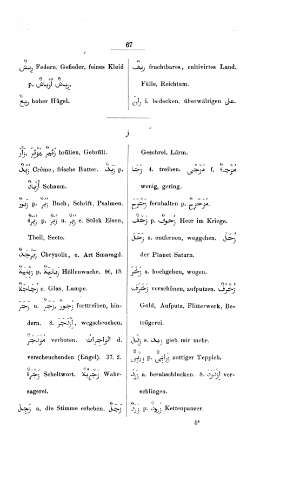 67
رِيش Federn, Gefieder, feines Kleid
p.
رِيع hoher Hügel.
رِيف fruchtbares, cultivirtes Land.
Fülle, Reichtum.
رَانَ i. bedecken, überwältigen على.
ز
brüllen, Gebrüll.
زُبْد Crême, frische Butter. زَبَد p.
Schaum.
زَبُور p. زُبُر Buch, Schrift, Psalmen.
زُبْرَة p. زُبَر u. Stück Eisen,
Theil, Secte.
زَبَرْجَد Chrysolit, e. Art Smaragd.
زَبَانِيَة p. Höllenwache. 96, 18
زُجَاجَة e. Glas, Lampe.
زَجَرَ u. forttreiben, hin-
dern. 8. اِزْدَجَرَ wegscheuchen.
مُزْدَجَر verboten. الزاجرات d.
verscheuchenden (Engel). 37. 2.
زَجْرَة Scheltwort. Wahr-
sagerei.
زَجَلَ u. die Stimme erheben. زَجَل
Geschrei, Lärm.
زَجَا 4. treiben. مُزْجًى f. مُزْجَاة
wenig, gering.
زَحْزَحَ fernhalten p. مُزَحْزِح
زَحْف p. زُحُوف Heer im Kriege.
زَحَلَ s. entfernen, weggehen. زُحَل
der Planet Saturn.
s. hochgehen, wogen.
زَخْرَفَ verschönen, aufputzen. زُخْرُف
Gold, Aufputz, Flitterwerk, Be-
trügerei.
gieb mir mehr.
p. زَرَابِيّ zottiger Teppich.
زَرَدَ u. herabschlucken. 8. اِزْدَرَدَ ver-
schlingen.
زَرَد p. زُرُود Kettenpanzer.
5*